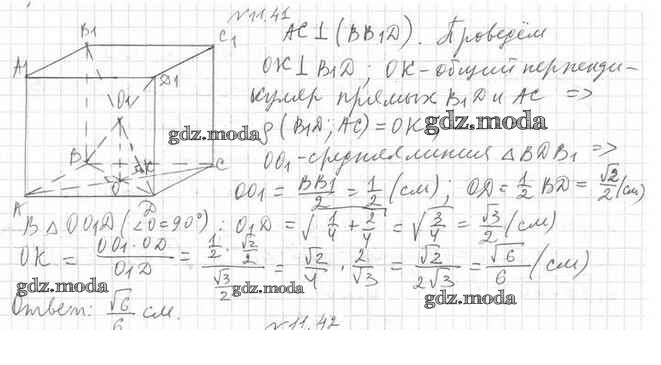 №11.41
AC⊥(BB1D). Проведём
OK⊥B1D; OK-общий перпенди-
куляр прямых B1D и AC =>
ρ(B1D; AC) = OK
gdz.moda
gdz.moda
OO1-средняя линия ΔBDB1 =>
OO1 = BB1/2 = 1/2 (см); OD = 1/2 BD = √2/2 (см)
В ΔOO1D (∠O=90°): O1D = √(1/4 + 2/4) = √(3/4) = √3/2 (см)
OK = OO1·OD/O1D = (1/2 · √2/2)/(√3/2) = √2/4 · 2/√3 = √2/(2√3) = √6/6 (см)
gdz.moda
gdz.moda
gdz.moda
Ответ: √6/6 см.
№11.42
B1
C1
A1
D1
O1
B
K
C
O
A
D